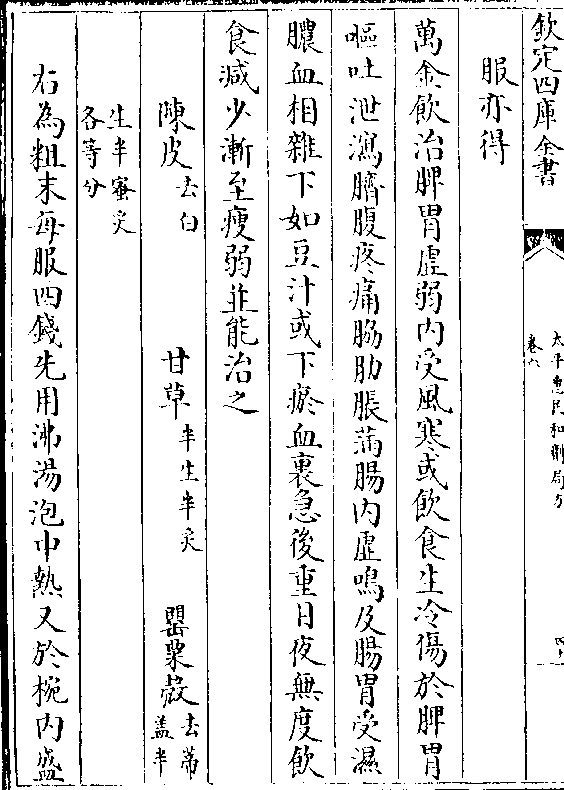 欽定四庫全書
太平惠民和劑局方
卷六
四十一
服亦得
萬金飲治脾胃虛弱内受風寒或飲食生冷傷於脾胃
嘔吐泄瀉臍腹疼痛脇肋脹滿腸内虛鳴及腸胃受濕
膿血相雜下如豆汁或下瘀血裏急後重日夜無度飲
食減少漸至瘦弱並能治之
陳皮去白 甘草半生半炙 罌粟殼去蒂盖半
生半蜜炙各等分
右為粗末每服四錢先用沸湯泡中熱又於椀内盛